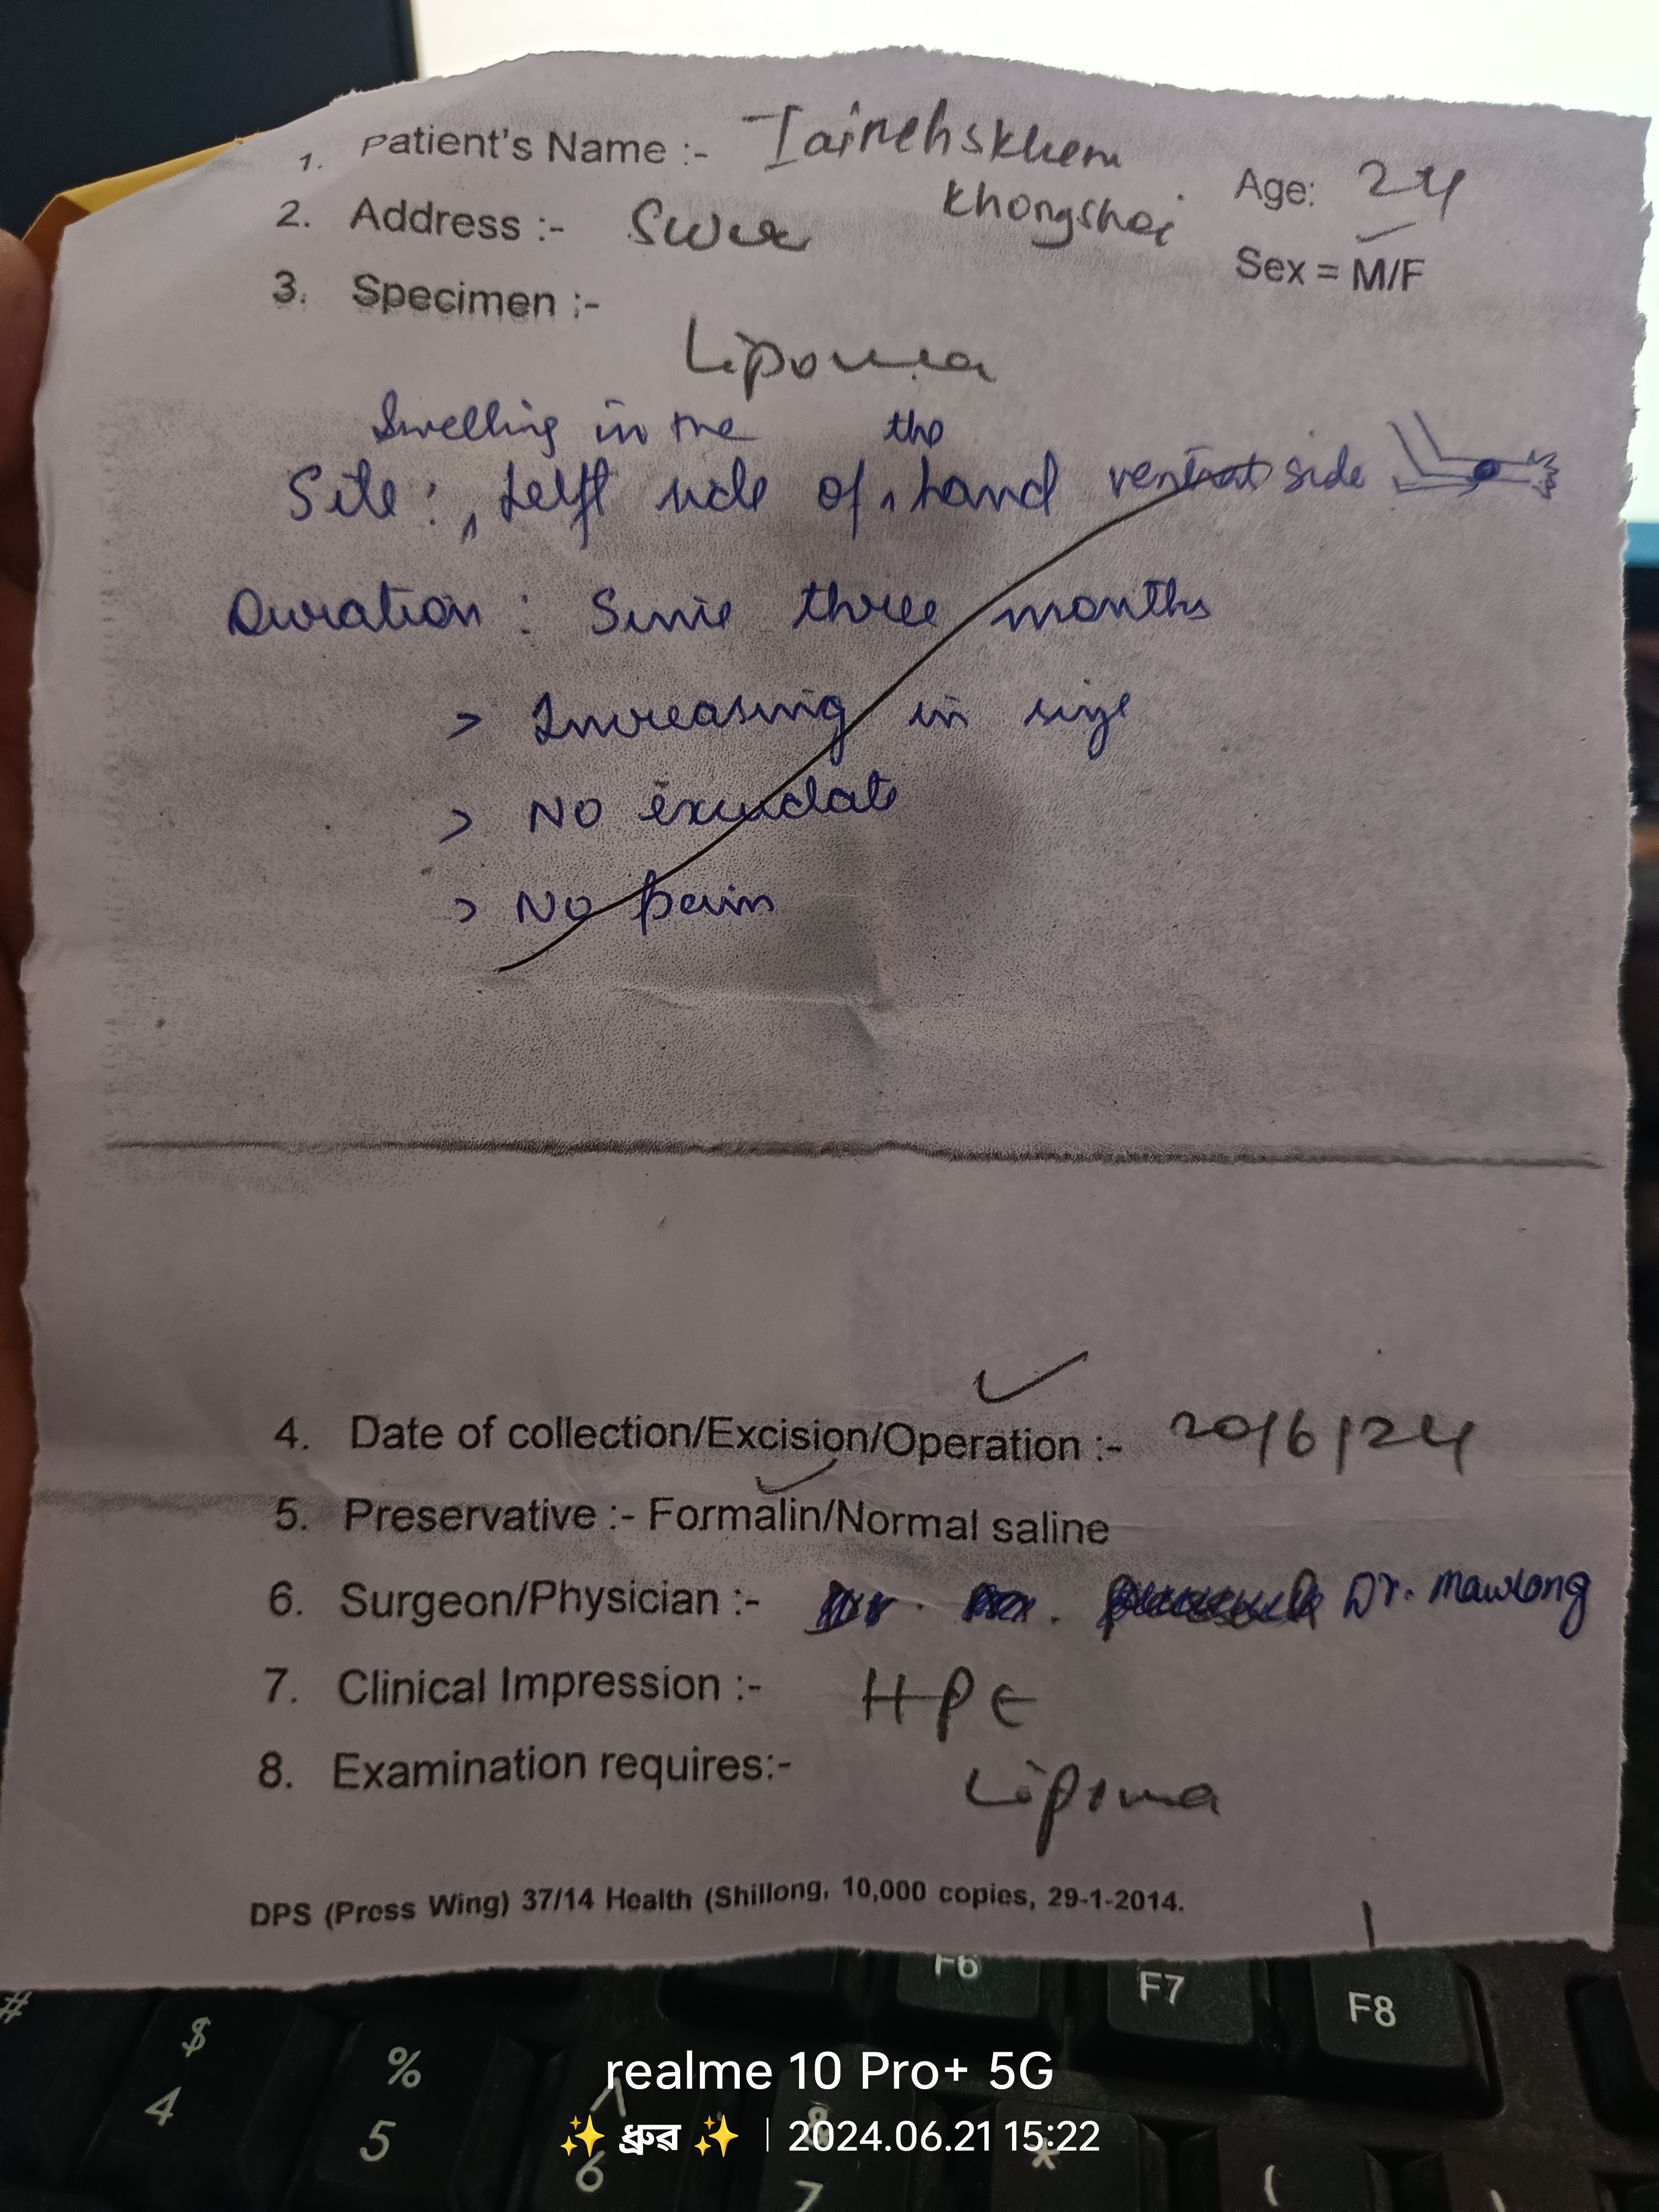 1. Patient's Name :- Iainehskhem Age: 24
Khongshai
2. Address :- Sex = M/F
3. Specimen :-
Lipoma
Swelling in the the
Site : Left side of hand ventral side
Duration : Since three months
> Increasing in size
> No exudate
> No pain
4. Date of collection/Excision/Operation :- 20/6/24
5. Preservative :- Formalin/Normal saline
6. Surgeon/Physician :- Dr. Mawlong
7. Clinical Impression :- HPE
8. Examination requires:-
Lipoma
DPS (Press Wing) 37/14 Health (Shillong, 10,000 copies, 29-1-2014.
F6 F7 F8
#
$ 4
% 5
^ 6
& 7
*
(
)
realme 10 Pro+ 5G
✨ ধ্রুৱ ✨ | 2024.06.21 15:22